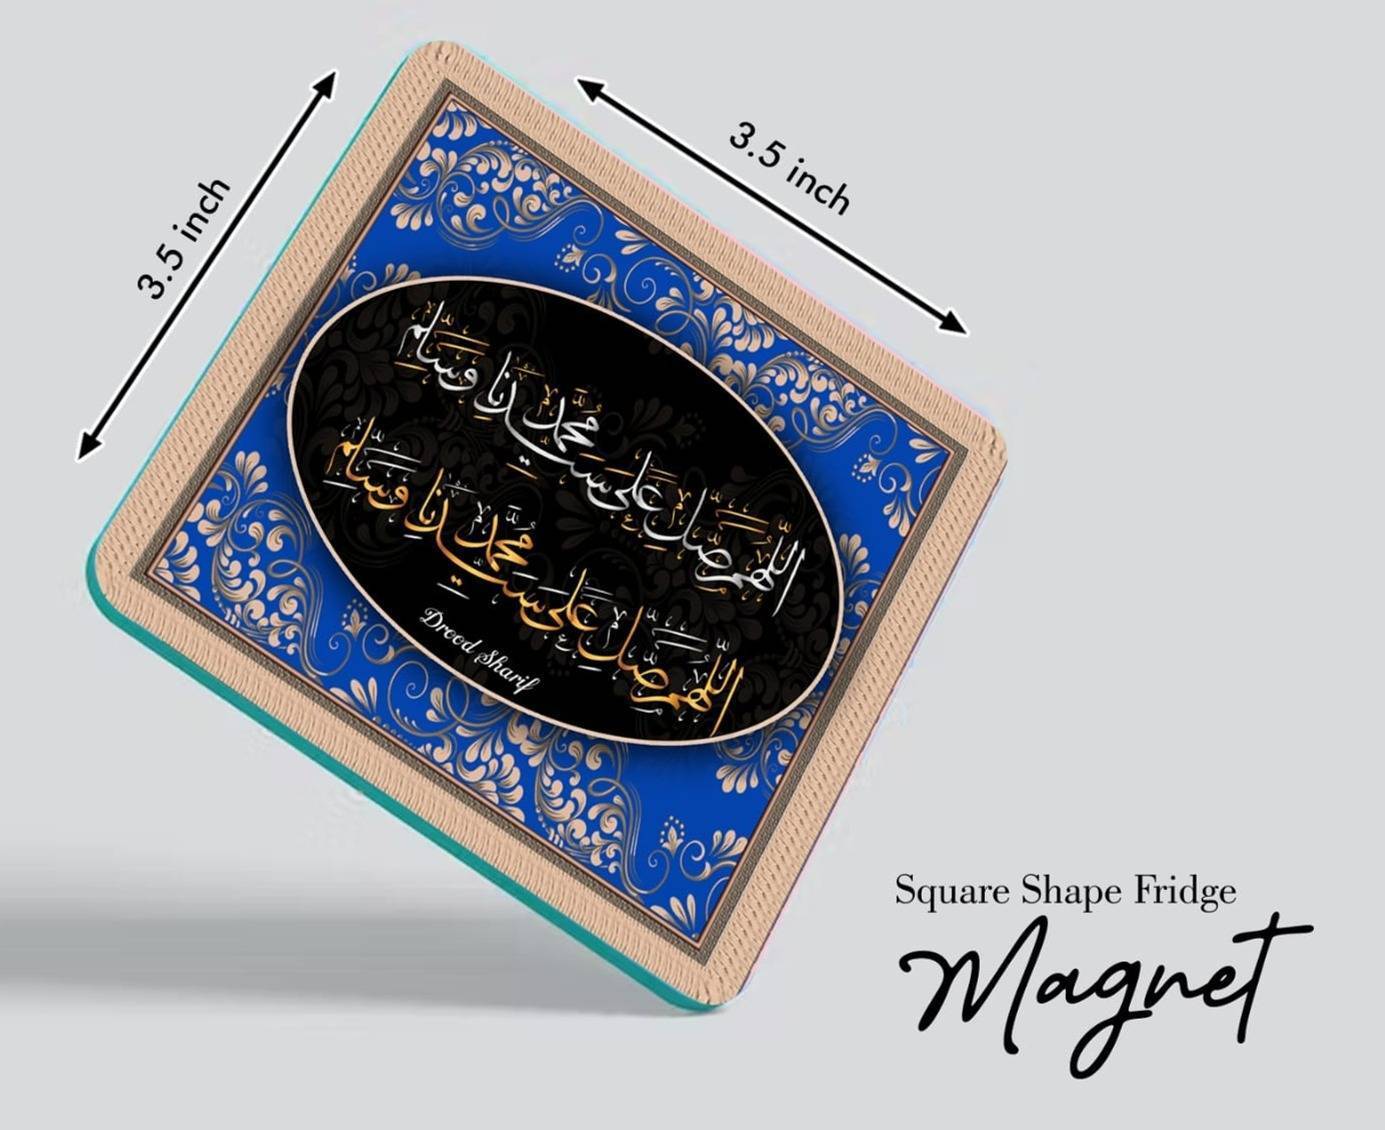 3.5 inch
3.5 inch
اللهم صل على سيدنا محمد وسلم
اللهم صل على سيدنا محمد وسلم
Drood Sharif
Square Shape Fridge
Magnet